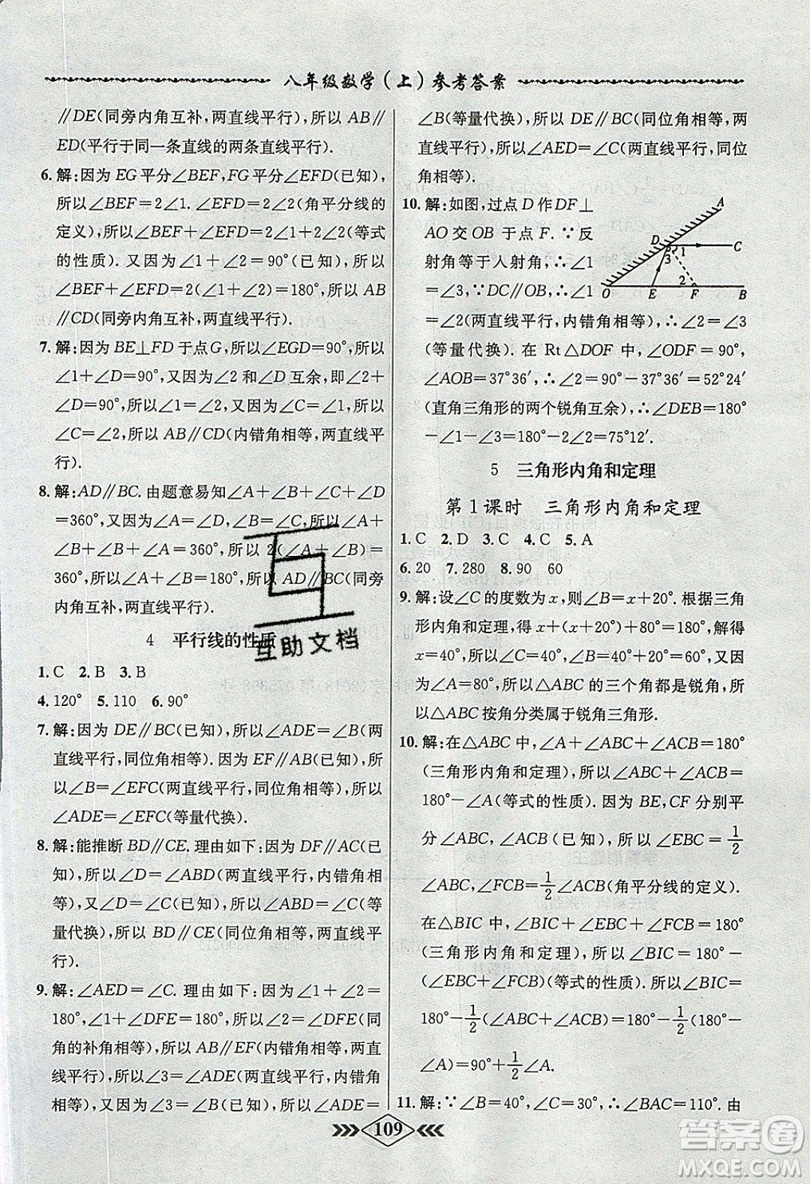 八年级数学(上)参考答案
∥DE(同旁内角互补，两直线平行)，所以 AB∥
ED(平行于同一条直线的两条直线平行).
6. 解:因为 EG 平分∠BEF,FG 平分∠EFD(已知),
所以∠BEF=2∠1. ∠EFD=2∠2(角平分线的
定义)，所以∠BEF+∠EFD=2(∠1+∠2)(等式
的性质). 又因为∠1+∠2=90°(已知)，所以
∠BEF+∠EFD=2(∠1+∠2)=180°，所以 AB
∥CD(同旁内角互补，两直线平行).
7. 解:因为 BE⊥FD 于点 G，所以∠EGD=90°，所
以∠1+∠D=90°，又∠2 和∠D 互余，即∠2+
∠D=90°，所以∠1=∠2. 又因为∠C=∠1，所以
∠C=∠2，所以 AB∥CD(内错角相等，两直线平
行).
8. 解:AD∥BC. 由题意易知∠A+∠B+∠C+∠D
=360°. 又因为∠A=∠D，∠B=∠C，所以
2(∠A+∠B)=360°，所以∠A+∠B=180°，所以 AD∥BC(同旁
内角互补，两直线平行).
4 平行线的性质
1. C 2. B 3. B
4. 120° 5. 110 6. 90°
7. 解:因为 DE∥BC(已知)，所以∠ADE=∠B(两
直线平行，同位角相等). 又因为 EF∥AB(已知)，
所以∠B=∠EFC(两直线平行，同位角相等)，所
以∠ADE=∠EFC(等量代换).
8. 解:能推断 BD∥CE. 理由如下:因为 DF∥AC(已
知)，所以∠D=∠ABD(两直线平行，内错角相
等). 又因为∠C=∠D(已知)，所以∠ABD=∠C
(等量代换)，所以 BD∥CE(同位角相等，两直线平
行).
9. 解:∠AED=∠C. 理由如下:因为∠1+∠2=
180°，∠1+∠DFE=180°，所以∠2=∠DFE(同
角的补角相等)，所以 AB∥EF(内错角相等，两直
线平行)，所以∠3=∠ADE(两直线平行，内错角
相等). 又因为∠3=∠B(已知)，所以∠ADE=
∠B(等量代换)，所以 DE∥BC(同位角相等，两
直线平行)，所以∠AED=∠C(两直线平行，同位
角相等).
10. 解:如图，过点 D 作 DF⊥
AO 交 OB 于点 F. ∵反
射角等于入射角，∴∠1
=∠3，∵DC∥OB(已知)，
∴∠1=∠2(两直线平行，内错角相等)，∴∠2=∠3
(等量代换). 在 Rt△DOF 中，∠ODF=90°，
∠AOB=37°36′，∴∠2=90°-37°36′=52°24′
(直角三角形的两个锐角互余)，∴∠DEB=180°
-∠2-∠3=180°-2∠2=75°12′.
A
D
C
3
1
2
O
E
F
B
5 三角形内角和定理
第 1 课时 三角形内角和定理
1. C 2. D 3. C 4. C 5. A
6. 20 7. 280 8. 90 60
9. 解:设∠C 的度数为 x，则∠B=∠A=x+20°. 根据三角
形内角和定理，得 x+(x+20°)+(x+20°)=180°，解得
x+20°+20°=180°
10. 解:在△ABC 中，∠A+∠ABC+∠ACB=180°
(三角形内角和定理)，所以∠ABC+∠ACB=
180°-∠A(等式的性质). 因为 BE,CF 分别平
分∠ABC,∠ACB(已知)，所以∠EBC=1/2
∠ABC，∠FCB=1/2∠ACB(角平分线的定义).
在△BIC 中，∠BIC+∠EBC+∠FCB=180°
(三角形内角和定理)，所以∠BIC=180°-
(∠EBC+∠FCB)(等式的性质). 所以∠BIC=
180°-1/2(∠ABC+∠ACB)=180°-1/2(180°-
∠A)=90°+1/2∠A.
11. 解:∵∠B=40°，∠C=30°，∴∠BAC=110°. 由
109
互助文档
答案圈
MXQE.COM